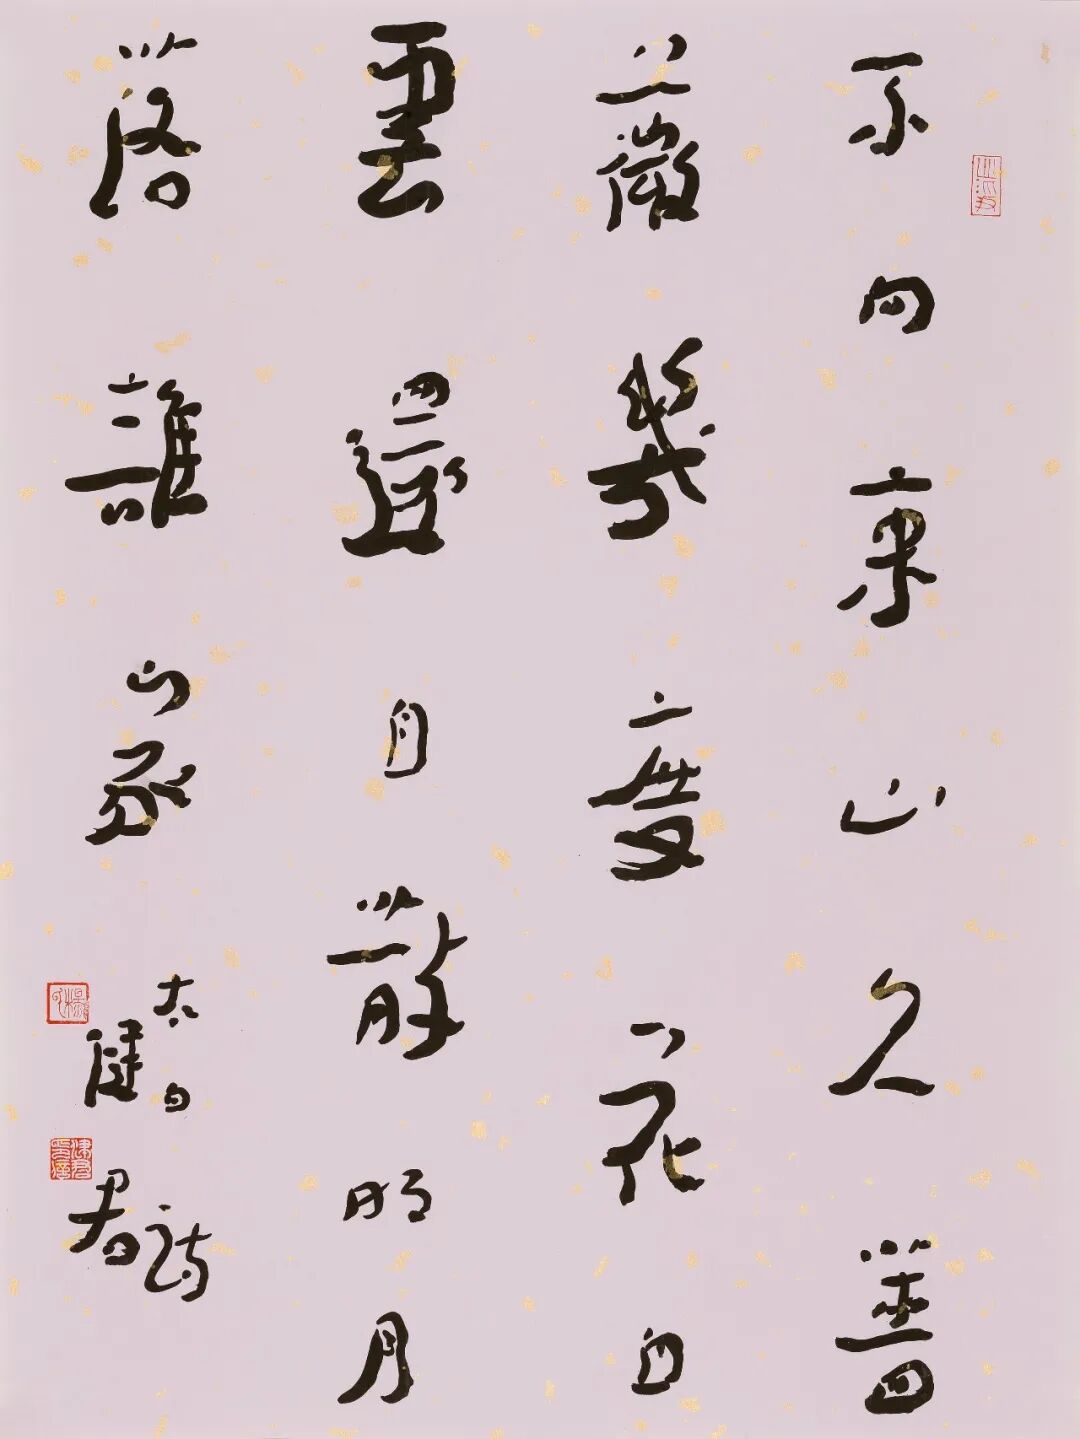 不向東山久薔
薇幾度花白
雲還自散明月
落誰家
太白詩
君